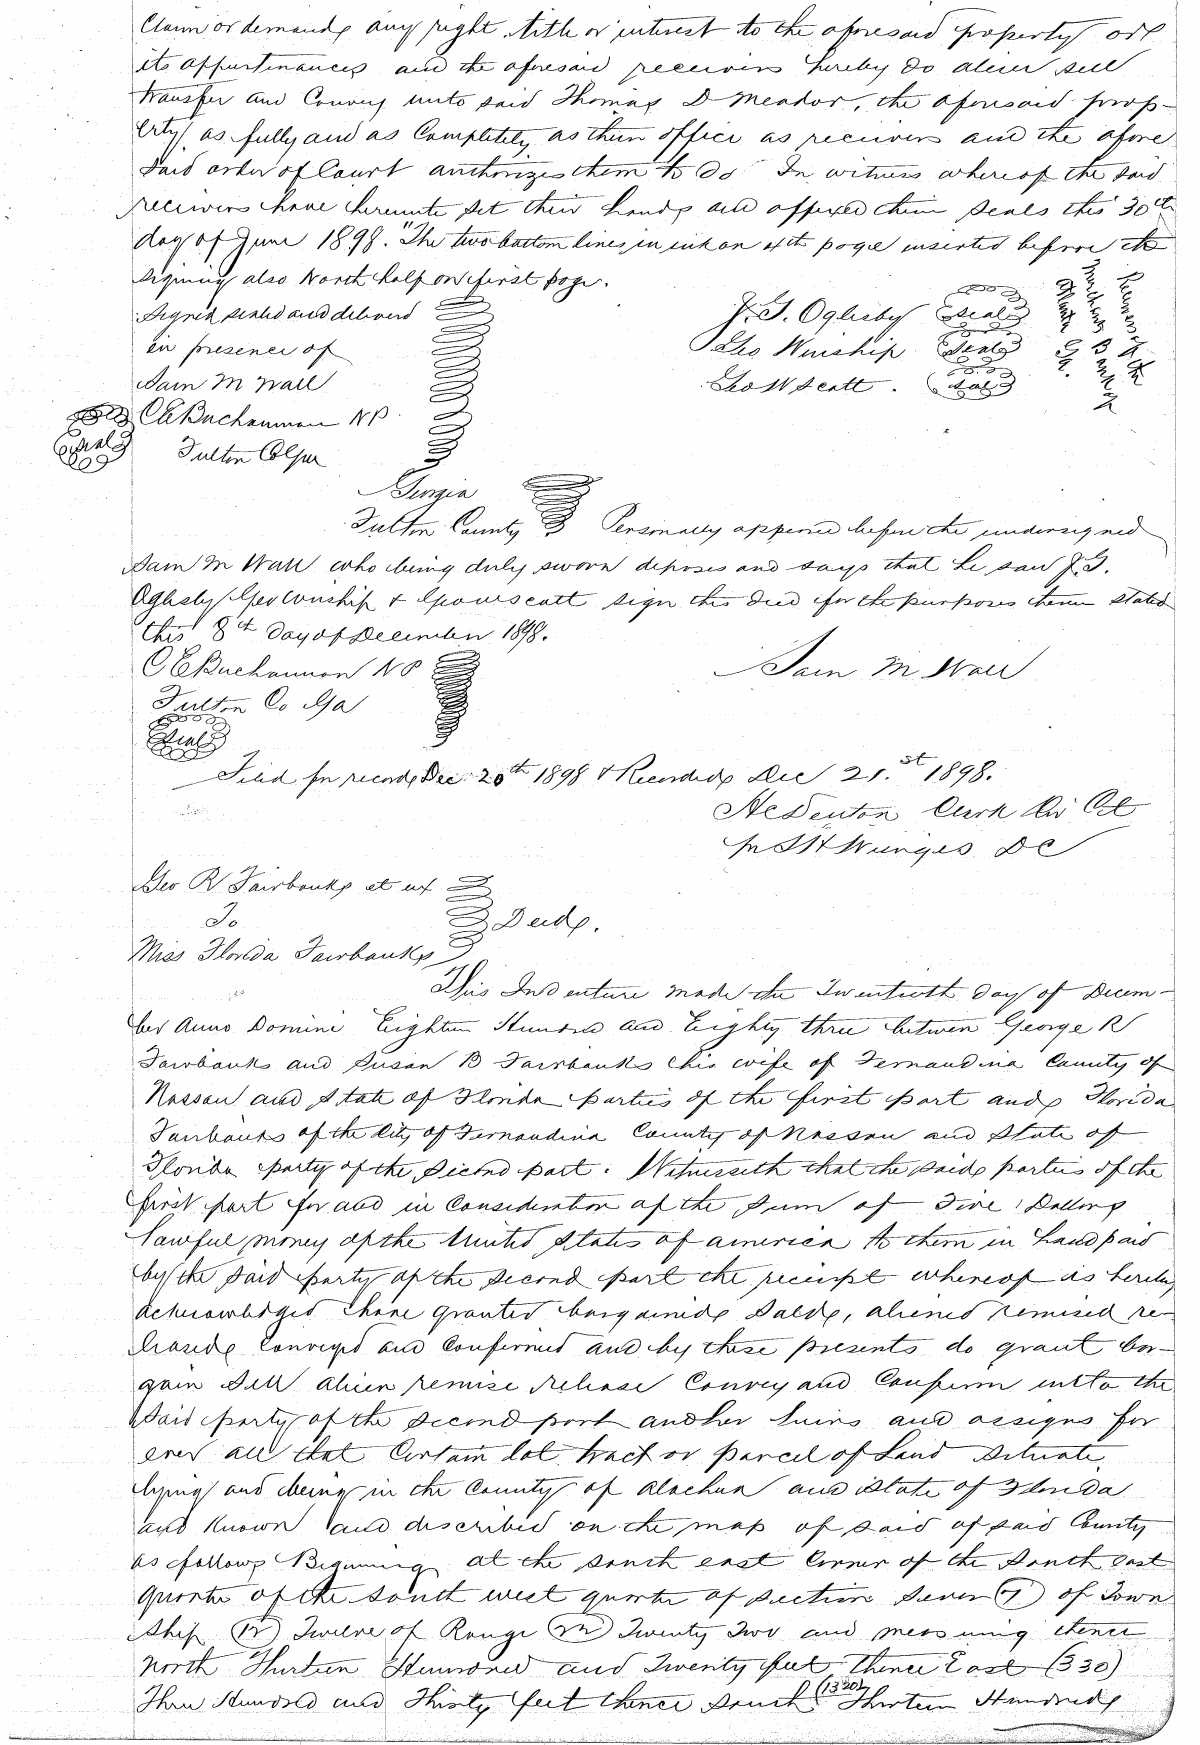 Claim or demand any right title or interest to the aforesaid property or
its appurtinances and the aforesaid receivers hereby do alien sell
transfer and Convey unto said Thomas D Meador, the aforesaid prop-
erty as fully and as Completely as their office as receivers and the afore
said order of Court authorizes them to do In witness whereof the said
receivers have hereunto set their hands and affixed their seals this 30th
day of June 1898. "The two bottom lines in ink on 4th page inserted before the
signing also North half on first page.
Signed sealed and delivered
in presence of
Sam M Wall
C E Buchannan NP
Seal
Fulton Co Ga
J. G. Oglesby Seal
Geo Winship Seal
Geo W Scott. Seal
Receivers of the
Merchants Bank
Atlanta Ga.
Georgia
Fulton County Personally appeared before the undersigned
Sam M Wall who being duly sworn deposes and says that he saw J. G.
Oglesby Geo Winship & Geo W Scott sign this deed for the purposes therein stated
this 8th day of December 1898.
C E Buchannon NP
Fulton Co Ga
Seal
Sam M. Wall
Filed for record Dec. 20th 1898 & Recorded Dec 21.st 1898.
H C Denton Clerk Cir Ct
pr S H Wienges DC
Geo R Fairbanks et ux
To
Deed.
Miss Florida Fairbanks
This Indenture made the Twentieth day of Decem-
ber Anno Domini Eighteen Hundred and Eighty three between George R
Fairbanks and Susan B Fairbanks his wife of Fernandina County of
Nassau and State of Florida parties of the first part and Florida
Fairbanks of the City of Fernandina County of Nassau and State of
Florida party of the second part. Witnesseth that the said parties of the
first part for and in Consideration of the sum of Five Dollars
lawful money of the United States of america to them in hand paid
by the said party of the second part the receipt whereof is hereby
acknowledged have granted bargained sold, aliened remised re-
leased conveyed and Confirmed and by these presents do grant bar-
gain sell alien remise release Convey and Confirm unto the
said party of the second part and her heirs and assigns for
ever all that Certain lot tract or parcel of land situate
lying and being in the County of Alachua and State of Florida
and Known and discribed on the map of said of said County
as follows Beginning at the south east Corner of the South east
quarter of the south west quarter of section Seven (7) of Town
ship (12) Twelve of Range (22) Twenty Two and measuring thence
north Thirteen Hundred and Twenty feet thence East (330)
Three Hundred and Thirty feet thence South (1320) Thirteen Hundred